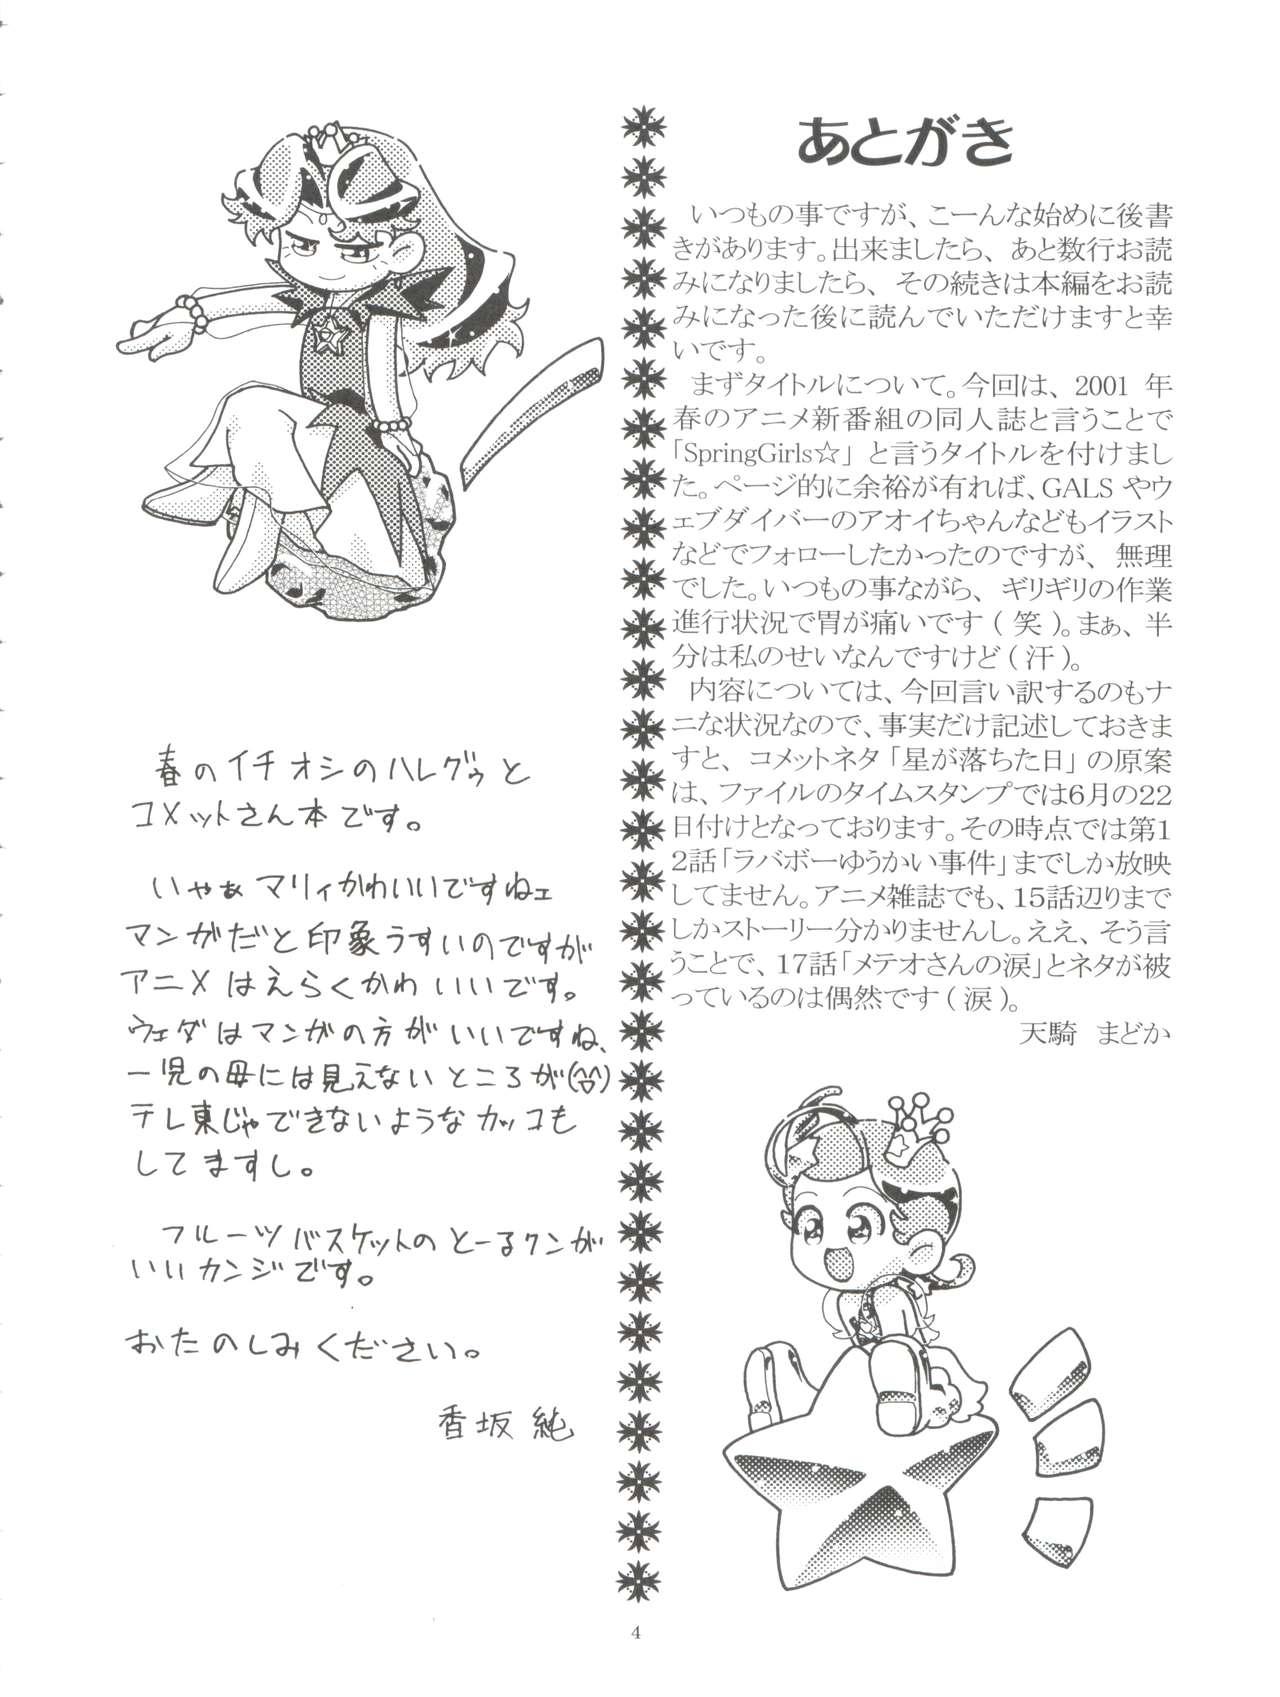 あとがき
いつもの事ですが、こーんな始めに後書
きがあります。出来ましたら、あと数行お読
みになりましたら、その続きは本編をお読
みになった後に読んでいただけますと幸
いです。
まずタイトルについて。今回は、2001 年
春のアニメ新番組の同人誌と言うことで
「SpringGirls☆」と言うタイトルを付けまし
た。ページ的に余裕が有れば、GALS やウ
ェブダイバーのアオイちゃんなどもイラスト
などでフォローしたかったのですが、無理
でした。いつもの事ながら、ギリギリの作業
進行状況で胃が痛いです(笑)。まぁ、半
分は私のせいなんですけど(汗)。
内容については、今回言い訳するのもナ
ニな状況なので、事実だけ記述しておきま
すと、コメットネタ「星が落ちた日」の原案
は、ファイルのタイムスタンプでは6月の22
日付けとなっております。その時点では第1
2話「ラバボーゆうかい事件」までしか放映
してません。アニメ雑誌でも、15話辺りまで
しかストーリー分かりませんし。ええ、そう言
うことで、17話「メテオさんの涙」とネタが被
っているのは偶然です(涙)。
天騎 まどか
春のイチオシのハレグゥと
コメットさん本です。
いやぁマリィかわいいですねェ
マンガだと印象うすいのですが
アニメはえらくかわいいです。
ウェダはマンガの方がいいですね、
一児の母には見えないところが(^^)
テレ東じゃできないようなカッコも
してますし。
フルーツバスケットのとーるクンが
いいカンジです。
おたのしみください。
香坂純
4